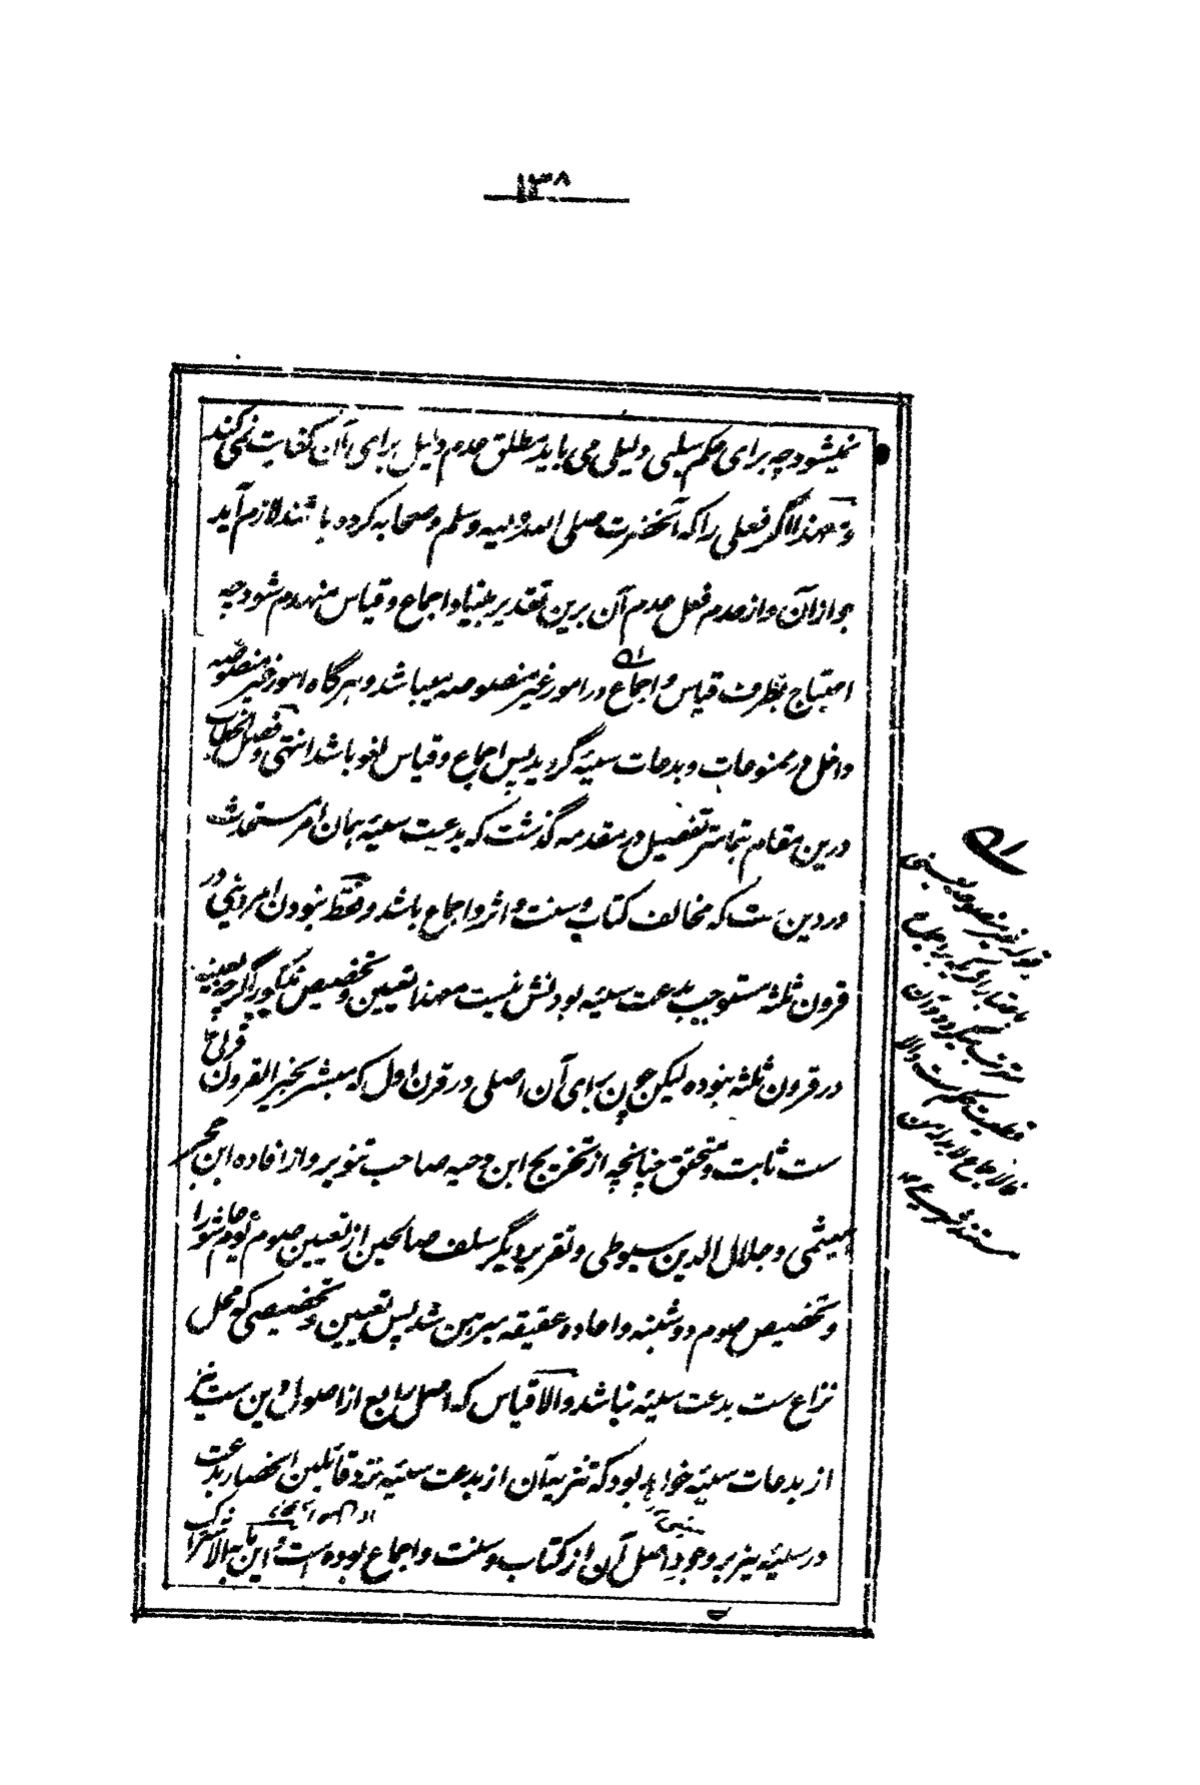 ۱۳۸
نمیشود چه برای حکم سلبی دلیلی می باید مطلق عدم دلیل برای آن کفایت نمی کند
و معهذا اگر فعلی را که آنحضرت صلی الله علیه وسلم و صحابه کرده باشند لازم آید
جواز آن و از عدم فعل عدم آن برین تقدیر بنیاد اجماع و قیاس منهدم شود چه
احتیاج بطرف قیاس و اجماع در امور غیر منصوصه میباشد و هر گاه امور غیر منصوصه
داخل در ممنوعات و بدعات سیئه گردید پس اجماع و قیاس لغو باشد انتهی و فصل الخطاب
درین مقام بتمامتر تفصیل در مقدمه گذشت که بدعت سیئه همان امر مستحدث
در دین ست که مخالف کتاب و سنت و اثر و اجماع باشد و فقط نبودن امر دینی در
قرون ثلثه مستوجب بدعت سیئه بودنش نیست معهذا تعیین و تخصیص مذکور اگر چه بعینه
در قرون ثلثه نبوده لیکن چون برای آن اصلی در قرن اول که مبشر بخیر القرون قرنی
ست ثابت و متحقق چنانچه از تخریج ابن دحیه صاحب تنویر و از افاده ابن حجر
هیثمی و جلال الدین سیوطی و تقریر دیگر سلف صالحین از تعیین صوم یوم عاشورا
و تخصیص صوم دوشنبه و اعاده عقیقه مبرهن شد پس تعیین و تخصیصی که محل
نزاع ست بدعت سیئه نباشد والا قیاس که اصل رابع از اصول دین ست نیز
از بدعات سیئه خواهد بود که تنزیه آن از بدعت سیئه نزد قائلین انحصار بدعت
در سیئه نیز بر وجود اصل آن از کتاب و سنت و اجماع بوده است و این ما به الاشتراک